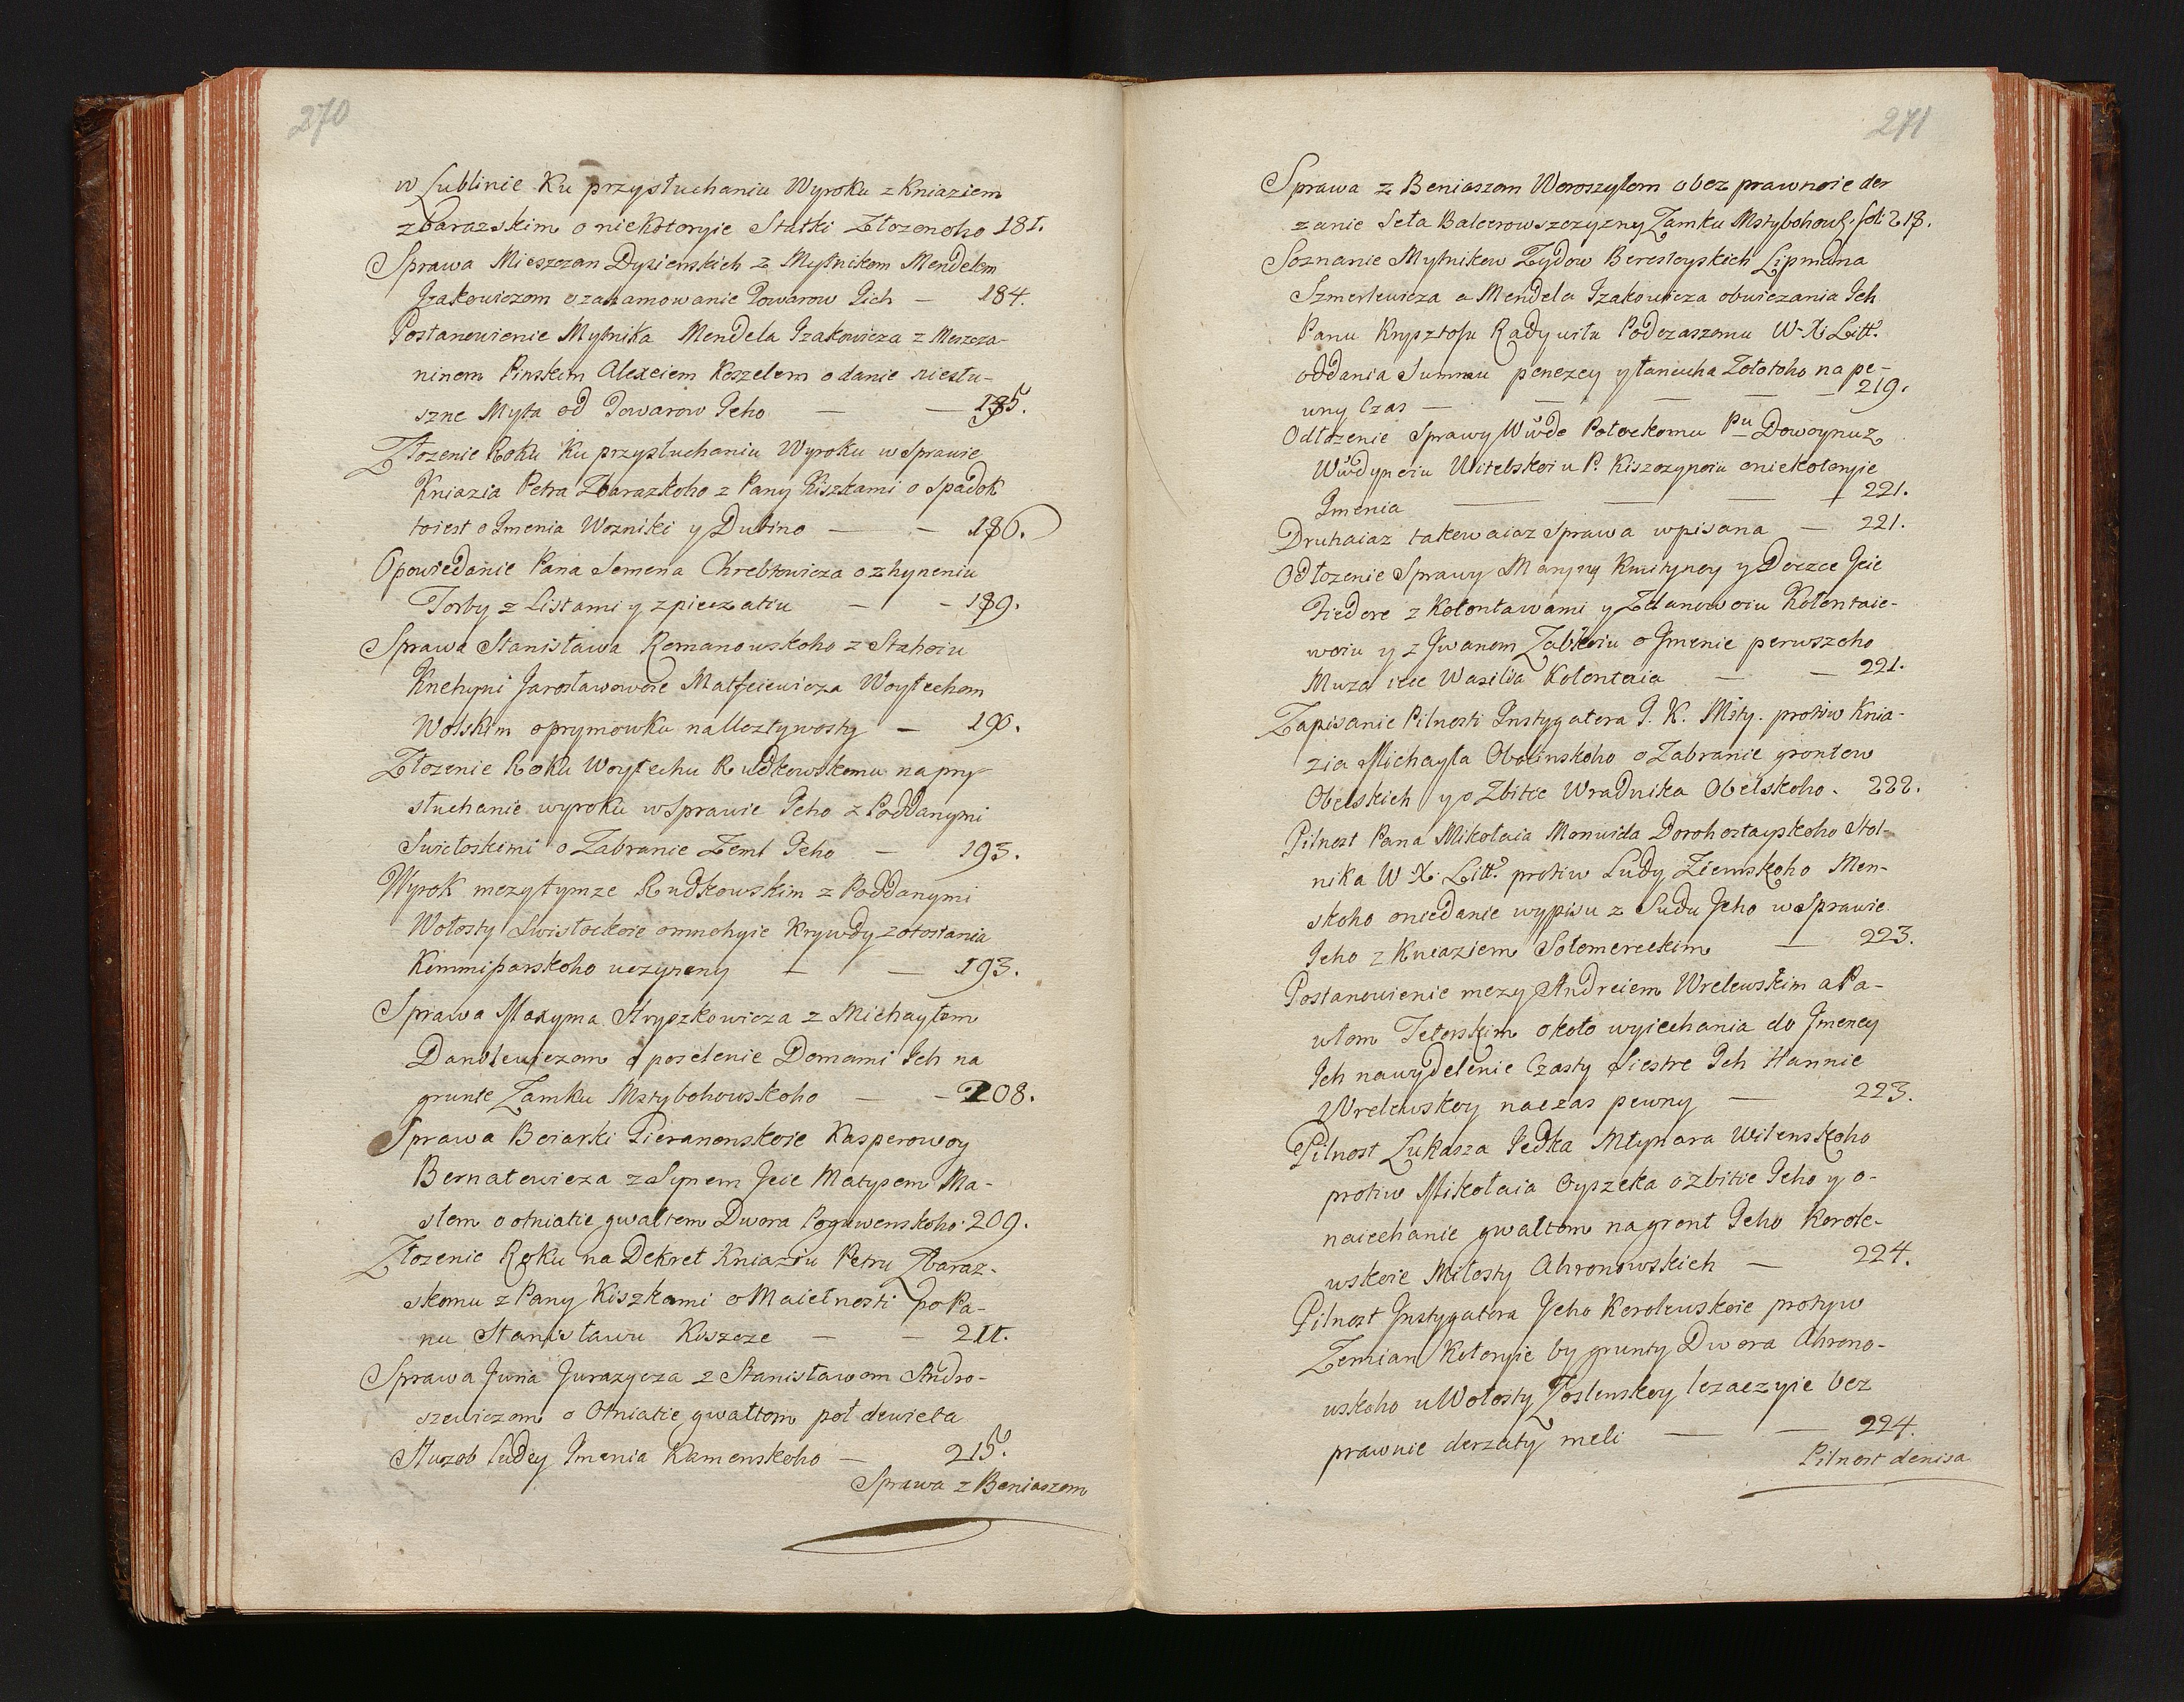 270
w Lublinie Ku przysłuchaniu Wyroku z Kniaziem
zbarazskim o niekotoryie Statki Złozonoho 181.
Sprawa Mieszczan Dysienskich z Mytnikom Mendelem
Izakowiczom o zahamowanie Towarow Jich — 184.
Postanowienie Mytnika Mendela Izakowicza z Meszcza-
ninom Pinskim Alexeiem Koszelem o danie niesłu-
szne Myta od Towarow Jeho — — 185.
Złozenie Roku Ku przysłuchaniu Wyroku w Sprawie
Kniazia Petra Zbarazkoho z Pany Kiszkami o Spadok
toiest o Imenia Wozniki y Dubino — — 186.
Opowiedanie Pana Semena Chrebtowicza o zhyneniu
Torby z Listami y z pieczatiu — — 189.
Sprawa Stanisława Romanowskoho z Stahoiu
Knehyni Jarosławowoie Matfeiewicza Woytechom
Wolskim o prymowku na Uczty­wosty — 190.
Złozenie Roku Woytechu Rudkowskomu na pry-
słuchanie wyroku w Sprawie Jeho z Poddanymi
Swisłoskimi o Zabranie Zeml Jeho — 193.
Wyrok mezy tymze Rudkowskim z Poddanymi
Wołosty Swisłockoie o mnohyie Krywdy zotostania
uczyneny — — 193.
Sprawa Maxyma Hryszkowicza z Michayłom
Danilewiczom o poselenie Domami Ich na
grunte Zamku Mstybohowskoho — — 208.
Sprawa Boiarki Gieranonskoie Kasperowoy
Bernatowicza z Synem Jeie Matysem Ma-
slem o otniatie gwałtem Dwora 209.
Złozenie Roku na Dekret Kniaziu Petru Zbaraz-
skomu z Pany Kiszkami o Maietnosti po Pa-
nu Stanisławu Kiszcze — — 211.
Sprawa Juria Jurazycza z Stanisławom Andro-
szewiczom o Otniatie gwałtom poł dewieta
Słuzob Ludey Imenia Kamenskoho — 215.
Sprawa z Beniaszom
271
Sprawa z Beniaszom Woroszyłom o bez prawnoie der
zanie Seła Balcerowszczyzny Zamku Mstybohowsk. fol: 218.
Soznanie Mytnikow Zydow Beresteyskich Lipmana
Szmerlewicza a Mendela Izakowicza obwiezania Ich
Panu Krysztofu Radywiłu Podczaszomu W. X. Litt.
oddania Summu penezey y łancucha Zołotoho na pe-
wny Czas — — — — 219.
Odłozenie Sprawy Wwde Połockomu Pu Dowoynu z
Wwdyneiu Witebskoiu P. Kiszczynoiu o niekotoryie
Imenia — — — 221.
Druhaiaz takowaiaz Sprawa wpisana — 221.
Odłozenie Sprawy Maryny Kmityney y Doczce Jeie
Fiedore z Kołontawami y Zdanowoiu Kołontaie-
woiu y z Iwanom Zabkoiu o Imenie perwszoho
Muza ieie Wasilia Kołontaia — — 221.
Zapisanie Pilnosti Instygatora J. K. Msty. protiw Knia-
zia Michayła Obolinskoho o Zabranie grontow
Obelskich y o Zbitie Wradnika Obelskoho. 222.
Pilnost Pana Mikołaia Monwida Dorohostayskoho Stol-
nika W. X. Litt. protiw Sudy Ziemskoho Men-
skoho o niedanie wypisu z Sudu Jeho w Sprawie
Jeho z Kniaziem Sołomereckim — 223.
Postanowienie mezy Andreiem Wrelewskim a Pa-
włom Teterskim około wyiechania do Imeney
Ich na wydelenie Czasty Siestre Ich Hannie
Wrelewskoy na czas pewny — 223.
Pilnost Łukasza Fedka Młynara Wilenskoho
protiw Mikołaia Oyszeka o zbitie Jeho y o-
naiechanie gwałtom na gront Jeho Korole-
wskoie Miłosty Ahronowskich — 224.
Pilnost Instygatora Jeho Korolewskoie protyw
Zemian Kotoryie by grunty Dwora Ahrono-
wskoho u Wołosty Zoslenskoy lezaczyie bez
prawnie derzaty meli — — 224.
Pilnost denisa